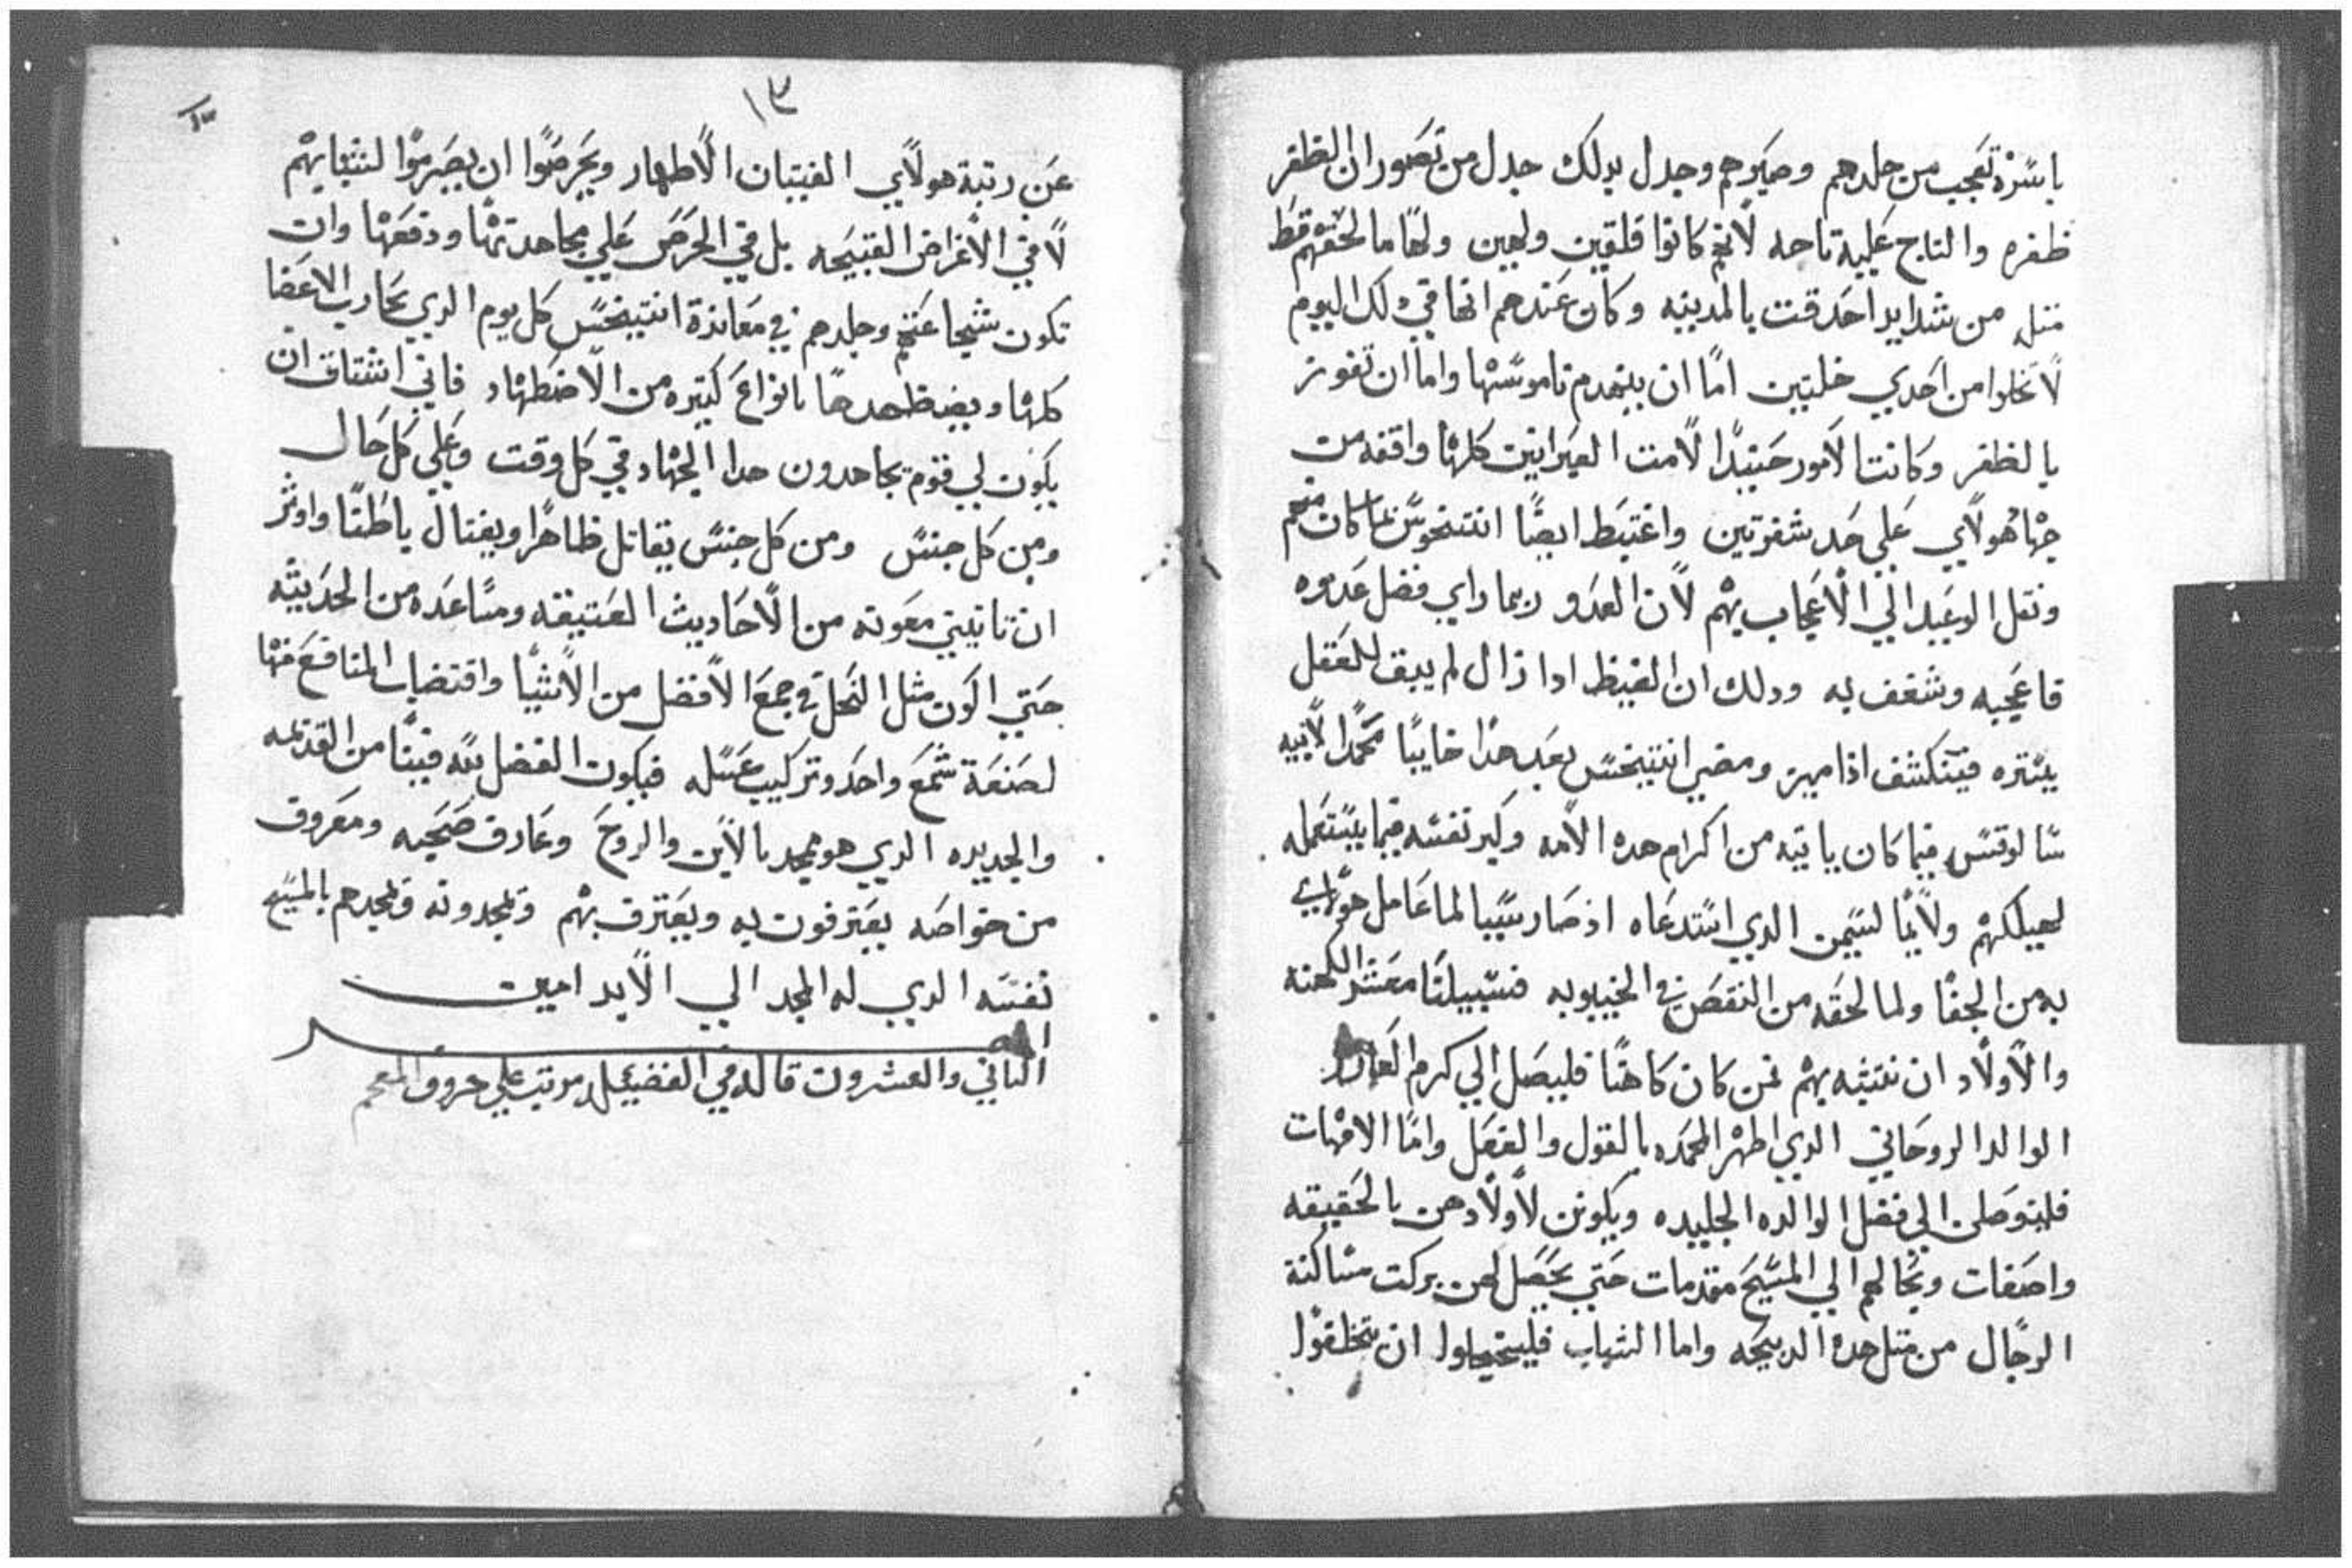 باسره تعجب من جلدهم وصبرهم وجدل بدلك جدل من تصور ان الظفر
ظفره والتاج عليه تاجه لانهم كانوا قلقين ولهين ولها ما لحقتهم قط
متله من شدايد احدقت بالمدينه وكان عندهم انها في دلك اليوم
لا تخلوا من احدي خلتين اما ان ينهدم ناموسها واما ان تفوز
بالظفر وكانت الامور حينيدا لامت العبرانين كلها واقفه من
جهاد هولاي علي حد شفرتين واغتبط ايضا انتيخوس بما كان منهم
ونقل الوعيد الي الاعجاب بهم لان العدو ربما راي فضل عدوه
فاعجبه وشغف به ودلك ان الغيظ ادا زال لم يبق للعقل
يستره فيتكشف اذا ميز ومضي انتيخس بعد هذا خايبا محمدا لابيه
سالوقس فيما كان ياتيه من اكرام هده الامه وكبر نفسه فيما يستعمله
لهيكلهم ولايما لسيمن الدي استدعاه اذ صار سببا لما عامل هولاي
به من الجفا ولما لحقه من النقص في الخيبوبه فسبيلنا معشر الكهنه
والاولاد ان نتشبه بهم فمن كان كاهنا فليصل الي كرم العازر
الوالد الروحاني الدي اظهر المحمده بالقول والفعل واما الامهات
فليتوصلن الي فضل الوالده الجليده ويكونن لاولادهن بالحقيقه
واصفات وبحالهم الي المسيح مقدمات حتي يحصل لهن بركت مساكنة
الرجال من متل هده الدبيحه واما الشباب فليتحيلوا ان يتخطفوا
١٣
عن رتبة هولاي الفتيان الاطهار ويحرصوا ان يصرموا لشبابهم
لا في الاغراض القبيحه بل في الحرص علي مجاهدتها ودفعها وان
تكون شجاعتهم وجلدهم في معاندة انتيخس كل يوم الدي يحارب الاعضا
كلها ويضطهدها بانواع كتيره من الاضطهاد فاني اشتاق ان
يكون لي قوم يجاهدون هدا الجهاد في كل وقت وعلي كل حال
ومن كل جنس ومن كل جنس يقاتل ظاهرا ويغتال باطنا واوثر
ان تاتيني معونه من الاحاديث العتيقه ومساعده من الحديثه
حتي اكون مثل النحل في جمع الافضل من الاشيا واقتضاب المنافع منها
لصنعة شمع واحد وتركيب عسله فيكون الفضل لله فينا من القديمه
والجديده الدي هو ممجد بالابن والروح وعارف صحبه ومعروف
من خواصه يعترفون به ويعترف بهم ويمجدونه ويمجدهم بالمسيح
نفسه الدي له المجد الي الابد امين
الثاني والعشرون قاله في الفضيله مرتب علي حروف المعجم